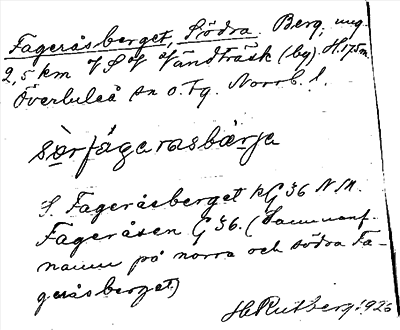 Fageråsberget, Södra. Berg, ung.
2,5 km V S V Vändträsk (by). H. 175 m.
Överluleå sn o. tg. Norrb. l.
sö̀rfága rasbærja
S. Fageråsberget kG 36 N M.
Fageråsen G 36. (Sammanf.
namn på norra och södra Fa-
geråsberget)
H Rutberg. 1926